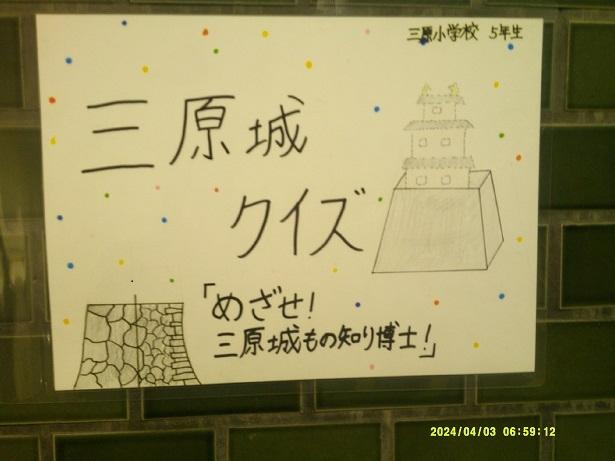 三原小学校 5年生
三原城
クイズ
「めざせ!
三原城もの知り博士!」
2024/04/03 06:59:12